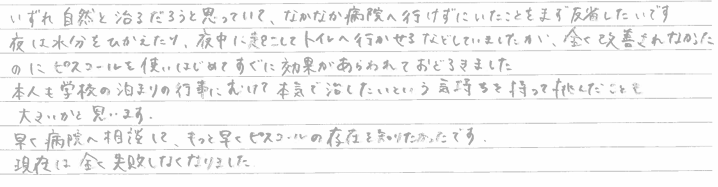 いずれ自然と治るだろうと思っていて、なかなか病院へ行けずにいたことをまず反省したいです
夜は水分をひかえたり、夜中に起こしてトイレへ行かせるなどしていましたが、全く改善されなかった
のにピスコールを使いはじめてすぐに効果があらわれておどろきました
本人も学校の泊まりの行事にむけて本気で治したいという気持ちを持って挑んだことも
大きいかと思います.
早く病院へ相談して、もっと早くピスコールの存在を知りたかったです.
現在は全く失敗しなくなりました